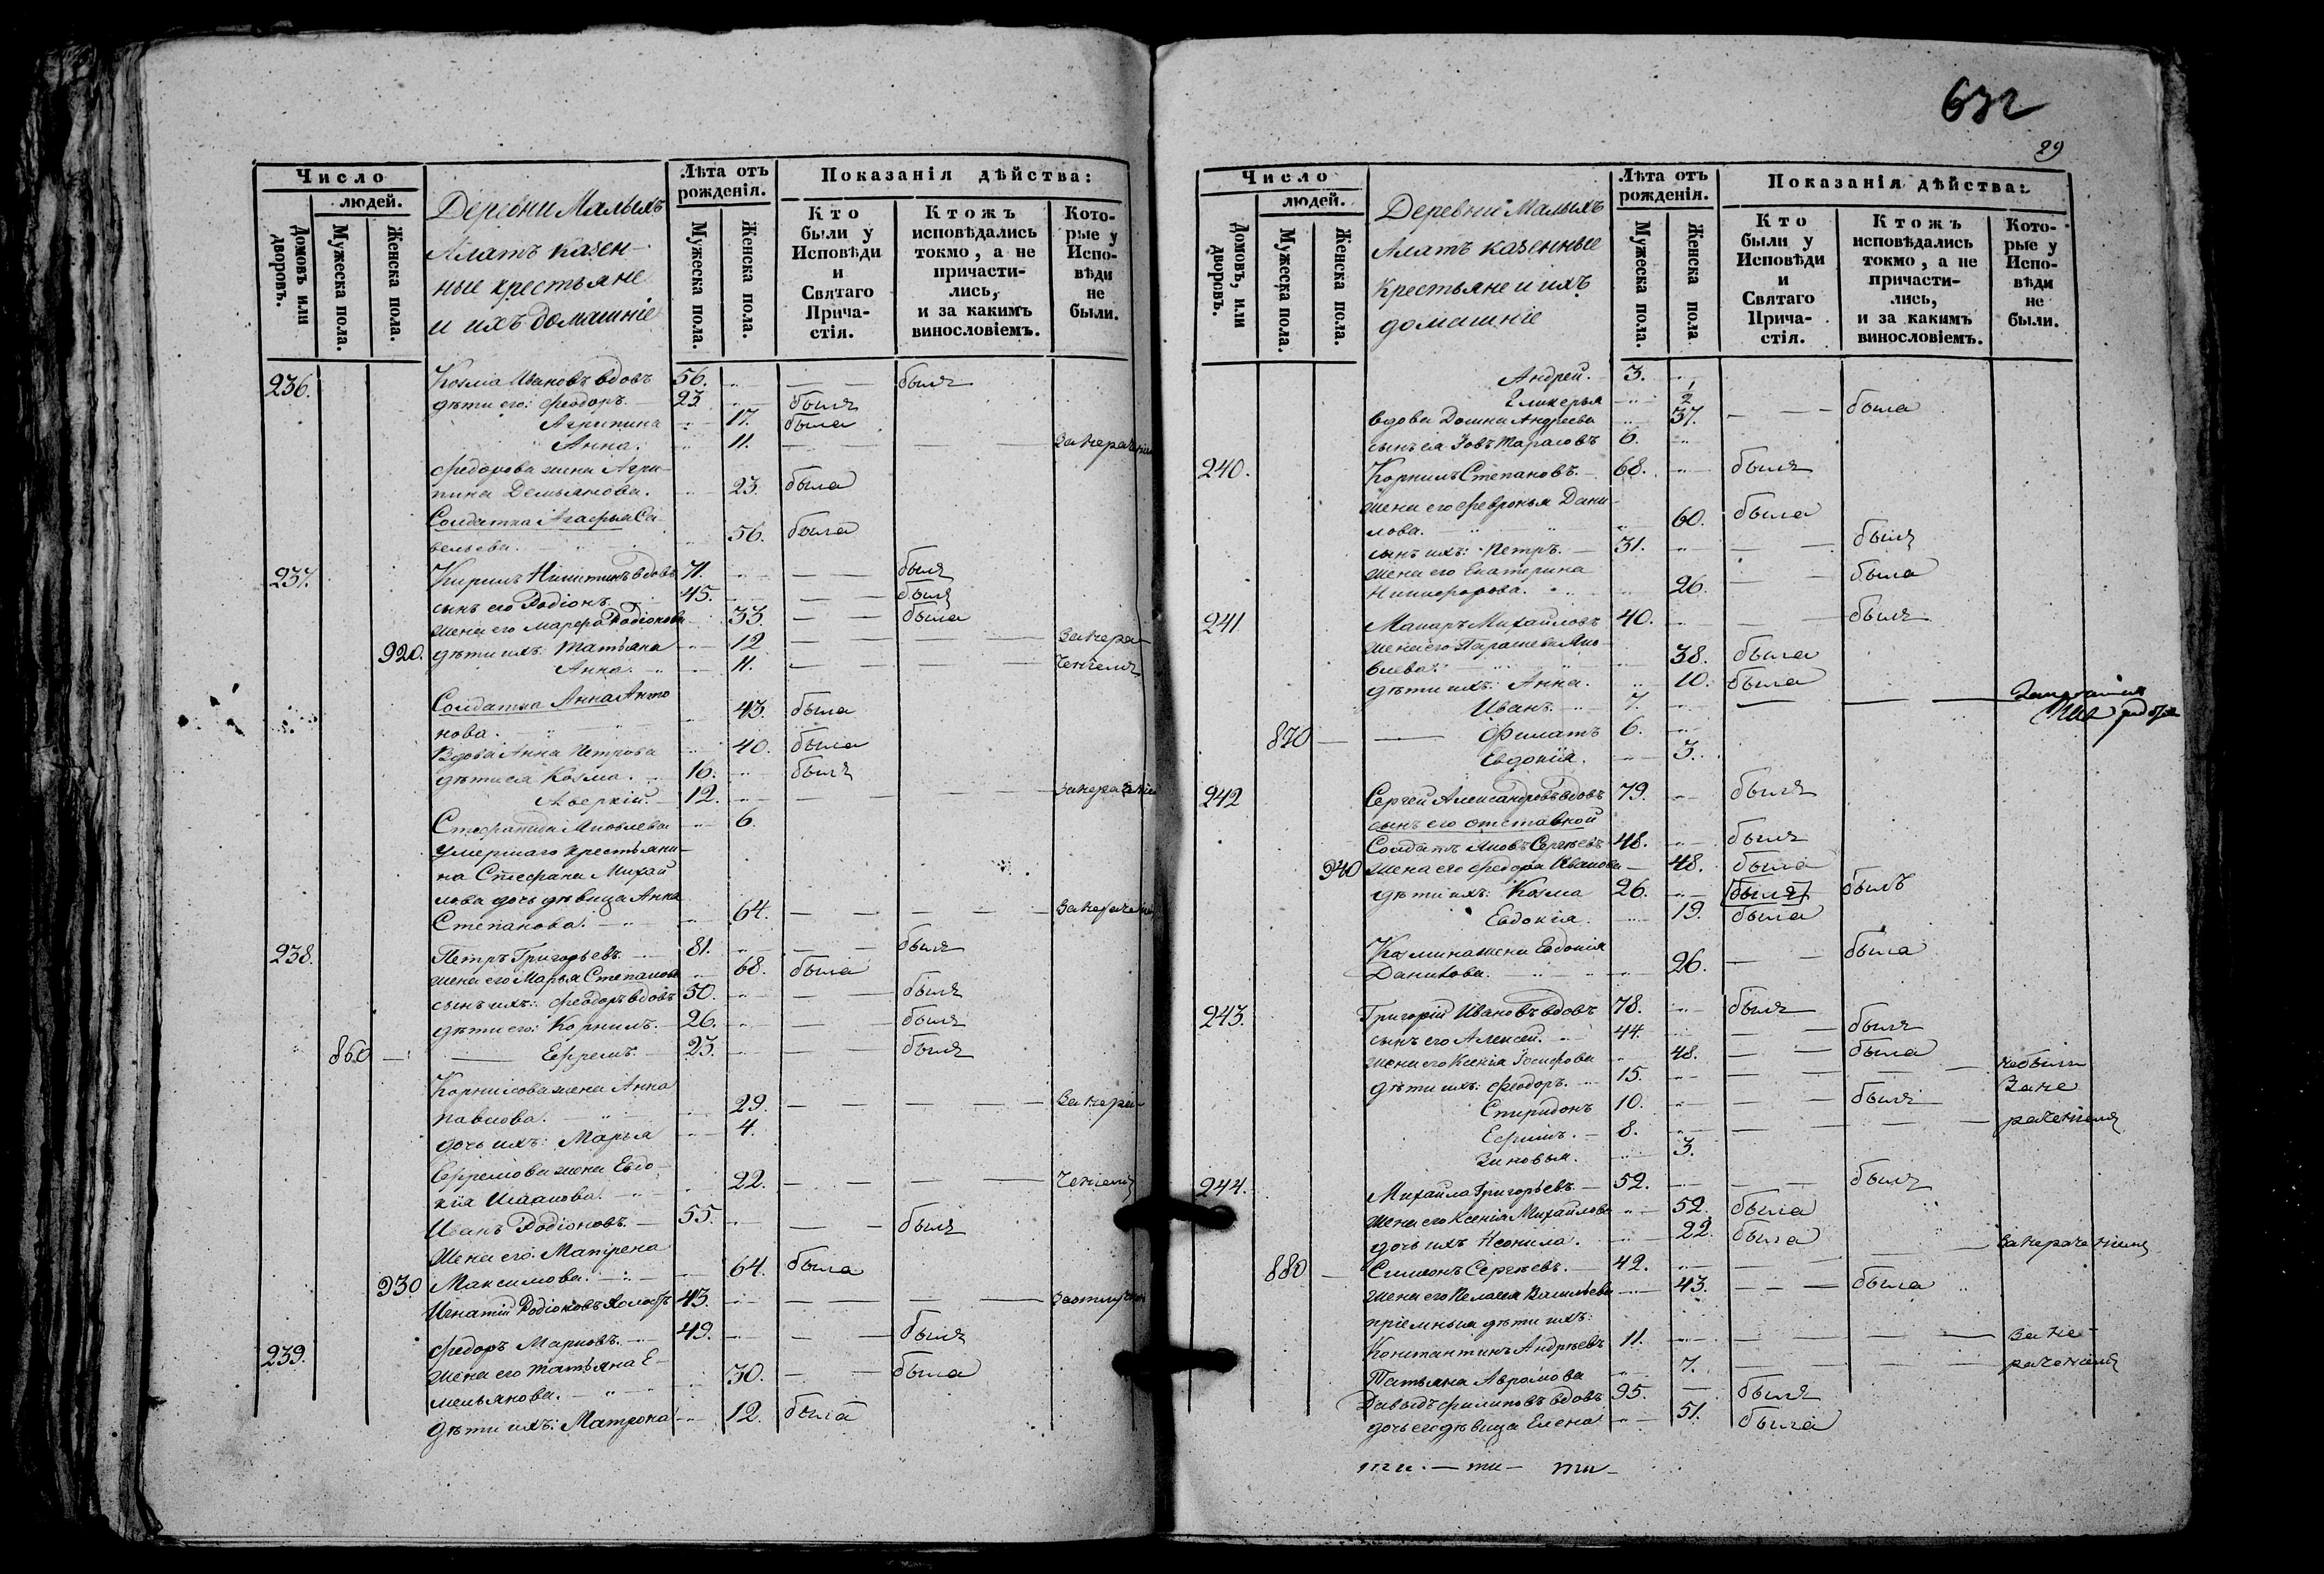 632
29
Число
людей.
Домовъ или дворовъ.
Мужеска пола.
Женска пола.
Деревни Малыхъ
Алатъ казен-
ные крестьяне
и ихъ домашніе
Лѣта отъ рожденія.
Мужеска пола.
Женска пола.
Показанія дѣйства:
Кто были у Исповѣди и Святаго Прича-стія.
Ктожъ исповѣдались токмо, а не причасти-лись, и за какимъ винословіемъ.
Кото-рые у Испо-вѣди не были.
236. Козма Ивановъ вдовъ 56. былъ
дѣти его: Феодоръ. 23 былъ
Агрипина 17. была
Анна. 11. за нераченіемъ
Федорова жена Агри-
пина Демьянова. 23. была
Солдатка Агафья Са-
вельева. 56. была
237. Кирилъ Никитинъ вдовъ 71. былъ
сынъ его Родіонъ. 45. былъ
жена его Марфа Родіонова 33. была
920. дѣти ихъ: Татьяна 12 за нера-
Анна. 11. ченіемъ
Солдатка Анна Анто
нова. 43. была
Вдова Анна Петрова 40. была
дѣти ея Козма. 16. былъ
Аверкій. 12. за нераченіем
Стефанида Яковлева 6.
умершаго крестьяни-
на Стефана Михай
лова дочь дѣвица Анна
Степанова. 64. за нераченіем
238. Петръ Григорьевъ. 81. былъ
жена его Марья Степанова 68. была
сынъ ихъ: Феодоръ вдовъ 50. былъ
дѣти его: Корнилъ. 26. былъ
860 Ефремъ. 23. былъ
Корнилова жена Анна
Павлова. 29. за нера-
дочь ихъ: Марья 4.
Ефремова жена Евдо-
кія 22. ченіемъ
Иванъ Родіоновъ. 55. былъ
Жена его Матрена
930 Максимова. 64. была
Игнатій Родіоновъ холостъ 43.
239. Федоръ Марковъ. 49. былъ
жена его Татьяна Е-
мельянова. 30. была
дѣти ихъ: Матрона 12. была
Число
людей.
Домовъ, или дворовъ.
Мужеска пола.
Женска пола.
Деревни Малыхъ
Алатъ казенные
Крестьяне и ихъ
домашніе
Лѣта отъ рожденія.
Мужеска пола.
Женска пола
Показанія дѣйства:
Кто были у Исповѣди и Святаго Прича-стія.
Ктожъ исповѣдались токмо, а не причасти-лись, и за какимъ винословіемъ.
Кото-рые у Испо-вѣди не были.
Андрей. 3.
Гликерья 1/2
вдова Домна Андреева 37. была
сынъ ея Іовъ Тарасовъ 6.
240. Корнилъ Степановъ. 68. былъ
жена его Февронья Дани-
лова. 60. была
сынъ ихъ: Петръ. 31. былъ
жена его Екатерина
Никифорова. 26. была
241 Макаръ Михайловъ 40. былъ
жена его Параскева Яко-
влева. 38. была
дѣти ихъ: Анна. 10. была
Иванъ. 7.
870 Филатъ 6.
Евдокія. 3.
242 Сергей Александровъ вдовъ 79. былъ
сынъ его отставной
Солдатъ Яковъ Сергѣевъ 48. былъ
940 жена его Федора Иванова 48. была
дѣти ихъ: Козма 26. былъ былъ
Евдокія. 19. была
Козмина жена Евдокія
Данилова. 26. была
243. Григорій Ивановъ вдовъ 78. былъ
сынъ его Алексей. 44. былъ
жена его Ксенія Іосифова 48. была
дѣти ихъ: Феодоръ. 15. не были
Спиридонъ 10. былъ за не
Ефимъ. 8. раченіемъ
Зиновья. 3.
244. Михайла Григорьевъ. 52. былъ
жена его Ксенія Михайлова 52. была
дочь ихъ Неонила. 22. была
880 Симеонъ Сергѣевъ. 42. за нераченіемъ
жена его Пелагея Васильева 43. была
пріемныя дѣти ихъ:
Константинъ Андрѣевъ 11. за не-
Татьяна Аврамова 7. раченіемъ
Давыдъ Филиповъ вдовъ 95. былъ
дочь его дѣвица Елена 51. была